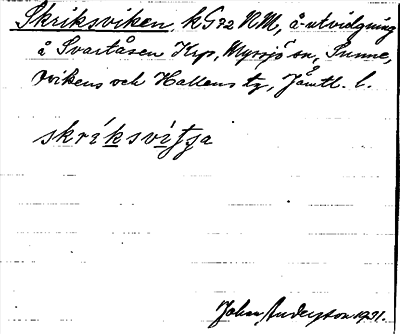 Skriksviken, kG32 NM, å-utvidgning
å Svartåsen Krp, Myssjö sn, Sunne,
Ovikens och Hallens tg, Jämtl. l.
skríksvitja
Johan Anderson 1931.